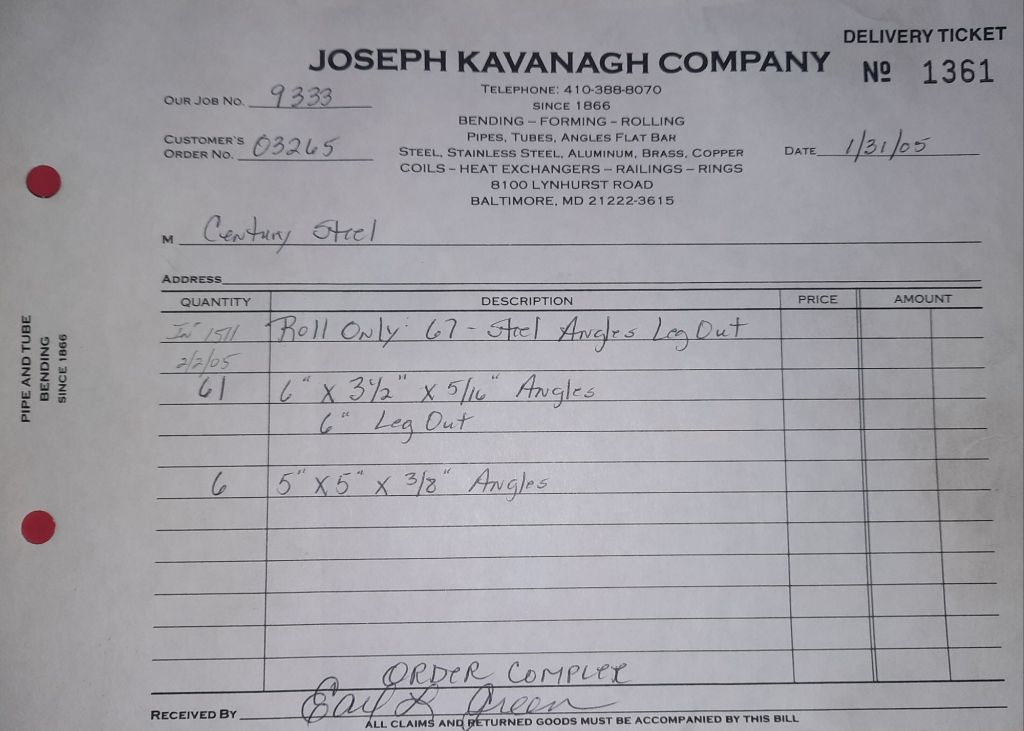 DELIVERY TICKET
JOSEPH KAVANAGH COMPANY
Nº 1361
TELEPHONE: 410-388-8070
SINCE 1866
BENDING – FORMING – ROLLING
PIPES, TUBES, ANGLES FLAT BAR
STEEL, STAINLESS STEEL, ALUMINUM, BRASS, COPPER
COILS – HEAT EXCHANGERS – RAILINGS – RINGS
8100 LYNHURST ROAD
BALTIMORE, MD 21222-3615
OUR JOB NO. 9333
CUSTOMER'S
ORDER NO. 03265
DATE 1/31/05
M Century Steel
ADDRESS
QUANTITY DESCRIPTION PRICE AMOUNT
1511 Roll Only: 67 - Steel Angles Leg Out
2/2/05
61 6" X 3 1/2" X 5/16" Angles
6" Leg Out
6 5" X 5" X 3/8" Angles
ORDER COMPLEX
RECEIVED BY Earl L Green
ALL CLAIMS AND RETURNED GOODS MUST BE ACCOMPANIED BY THIS BILL
PIPE AND TUBE
BENDING
SINCE 1866